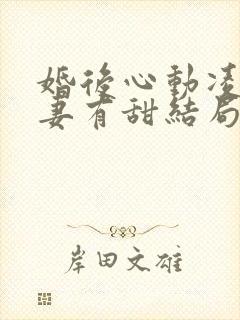 婚後心動凌
妻有甜結局
岸田文雄